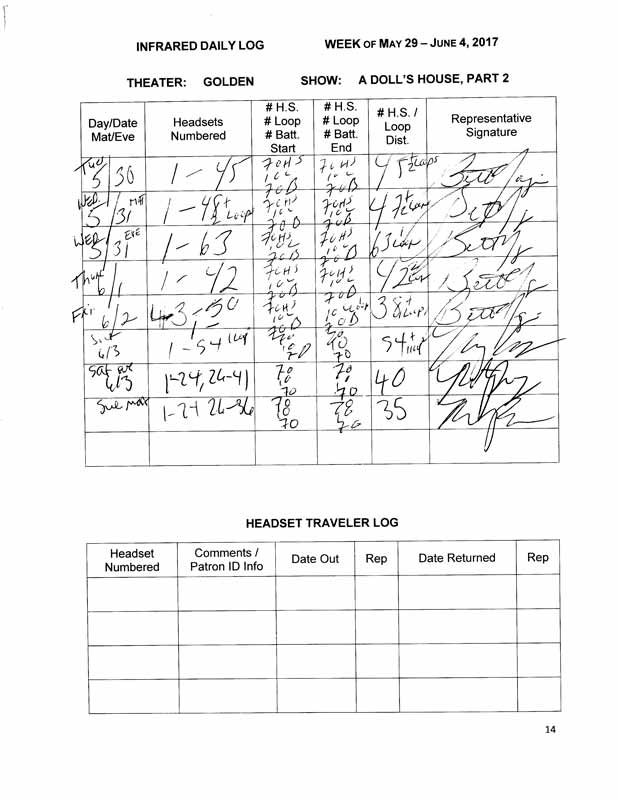 INFRARED DAILY LOG WEEK OF MAY 29 – JUNE 4, 2017
THEATER: GOLDEN SHOW: A DOLL'S HOUSE, PART 2
Day/Date Mat/Eve Headsets Numbered # H.S. # Loop # Batt. Start # H.S. # Loop # Batt. End # H.S. / Loop Dist. Representative Signature
Tue 5/30 1 – 45 70 HS 10L 70B 70 HS 10L 70B 45
WED 5/31 MAT 1 – 48 + 2 Loops 70HS 10L 70B 70HS 10L 70B 47
WED 5/31 EVE 1 – 63 70HS 10L 70B 70HS 10L 70B 63
Thur 6/1 1 – 42 70HS 10L 70B 70HS 10L 70B 42
Fri 6/2 43 – 50 70HS 10L 70B 10 Loop 70B 38 +
Sat 6/3 1 – 54 70 10 70 70 54 +
Sat eve 6/3 1-24, 26-41 70 10 70 70 10 70 40
Sun mat 1-24 26-36 70 70 35
HEADSET TRAVELER LOG
Headset Numbered Comments / Patron ID Info Date Out Rep Date Returned Rep
14